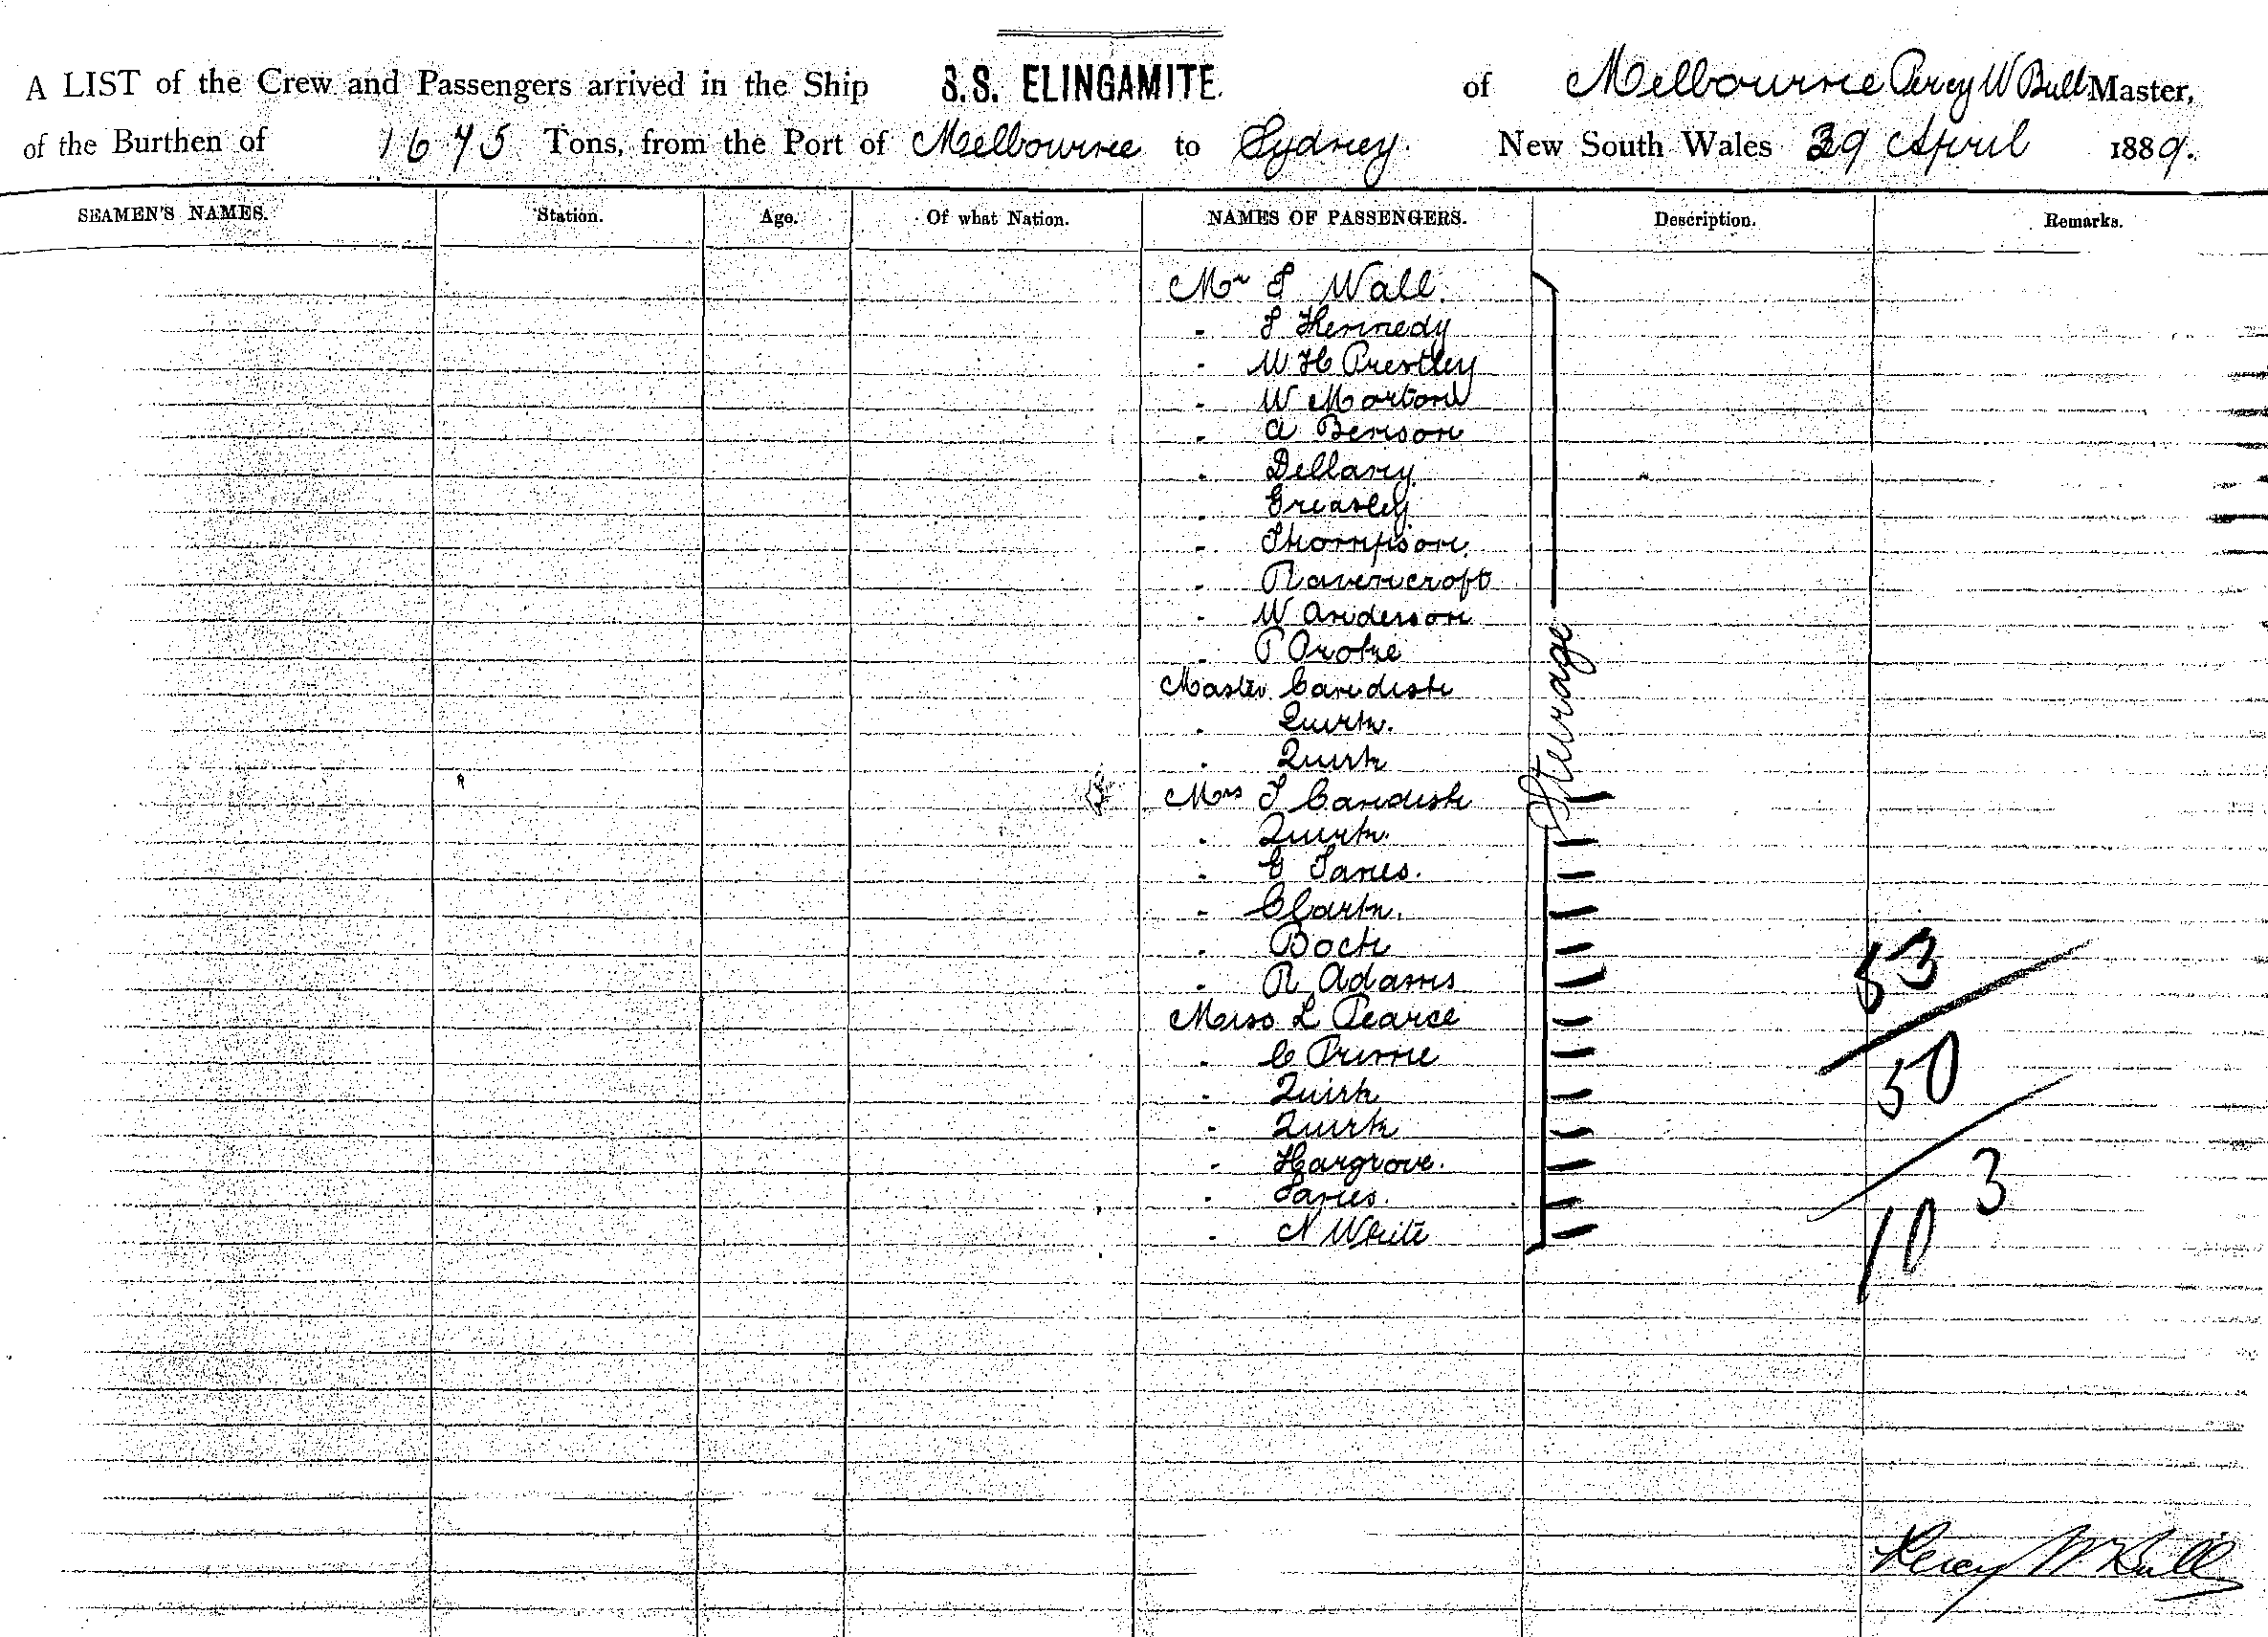 A LIST of the Crew and Passengers arrived in the Ship S.S. ELINGAMITE. of Melbourne Percy W Bull Master,
of the Burthen of 1675 Tons, from the Port of Melbourne to Sydney. New South Wales 29 April 1889.
SEAMEN'S NAMES. Station. Age. Of what Nation. NAMES OF PASSENGERS. Description. Remarks.
Mr Wall.
- Kennedy
- W H Prestley
- W Morton
- A Benson
- Dellany.
- Greasley.
- Thompson.
- Ravencroft
- W Anderson
- P
Master Candish
- Quirk.
- Quirk
Mrs Candish
- Quirk.
-
- Clark.
- Bock
- R Adams
Miss L Pearce
- C Prime
- Quirk
- Quirk
- Hargrove.
-
- N White
Steerage
53
50
3
10
Percy W Bull